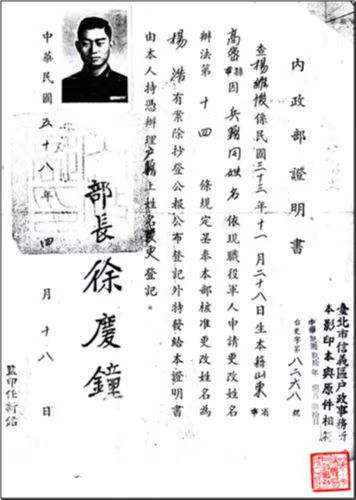 內政部證明書
台吏字第八二六八號
查楊維悛係民國三十三年十一月二十八日生本籍山東省
高密縣市因兵籍同姓名依現職役軍人申請更改姓名
辦法第十四條規定呈奉本部核准更改姓名為
楊浩有案除抄登公報公布登記外特發給本證明書
由本人持憑辦理戶籍上姓名變更登記。
部長徐慶鐘
中華民國五十八年四月十八日
監印任新結
臺北市信義區戶政事務所
本影印本與原件相符